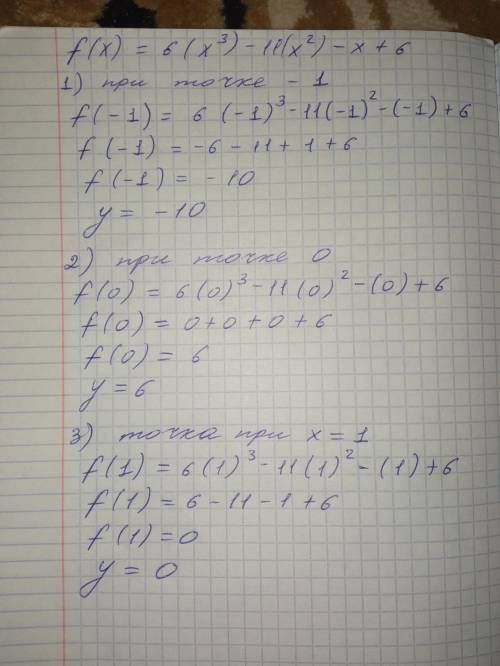 f(x) = 6(x³) - 11(x²) - x + 6
1) при точке - 1
f(-1) = 6 (-1)³ - 11(-1)² - (-1) + 6
f(-1) = -6 - 11 + 1 + 6
f(-1) = - 10
y = - 10
2) при точке 0
f(0) = 6(0)³ - 11(0)² - (0) + 6
f(0) = 0 + 0 + 0 + 6
f(0) = 6
y = 6
3) точка при x = 1
f(1) = 6(1)³ - 11(1)² - (1) + 6
f(1) = 6 - 11 - 1 + 6
f(1) = 0
y = 0